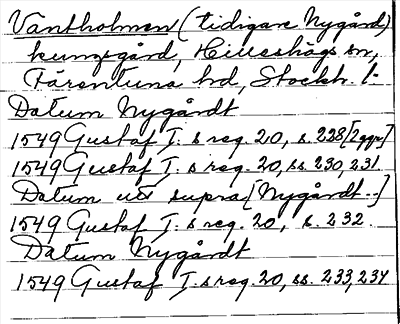 Vantholmen (tidigare Nygård)
kungsgård, Hilleshögs sn,
Färentuna hd, Stockh. l:
Datum Nygårdt
1549 Gustaf I. s reg. 20, s. 228 [2 ggr]
1549 Gustaf I. s reg. 20, ss. 230, 231
Datum ut supra [Nygårdt --]
1549 Gustaf I. s reg. 20, s. 232.
Datum Nygårdt
1549 Gustaf I. s reg. 20, ss. 233, 234